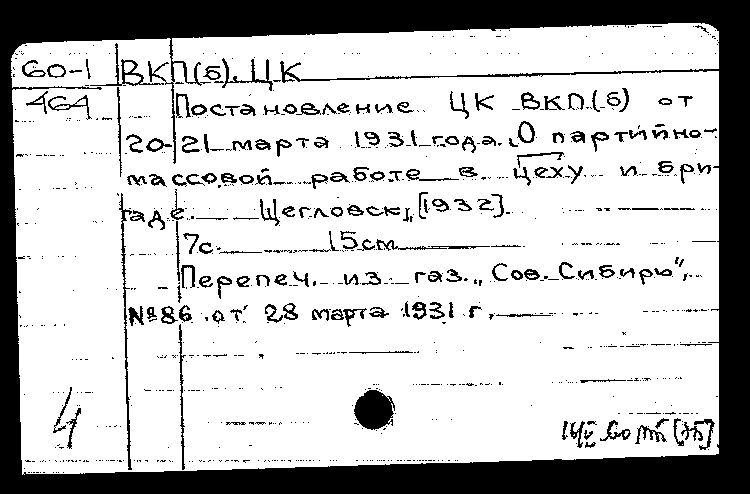 60-1 ВКП(б). ЦК
464 Постановление ЦК ВКП.(б) от
20-21 марта 1931 года. „О партийно-
массовой работе в цеху и бри-
гаде. Щегловск, [1932].
7с. 15cm
Перепеч. из газ. „Сов. Сибирь",
№86 от 28 марта 1931 г.
4